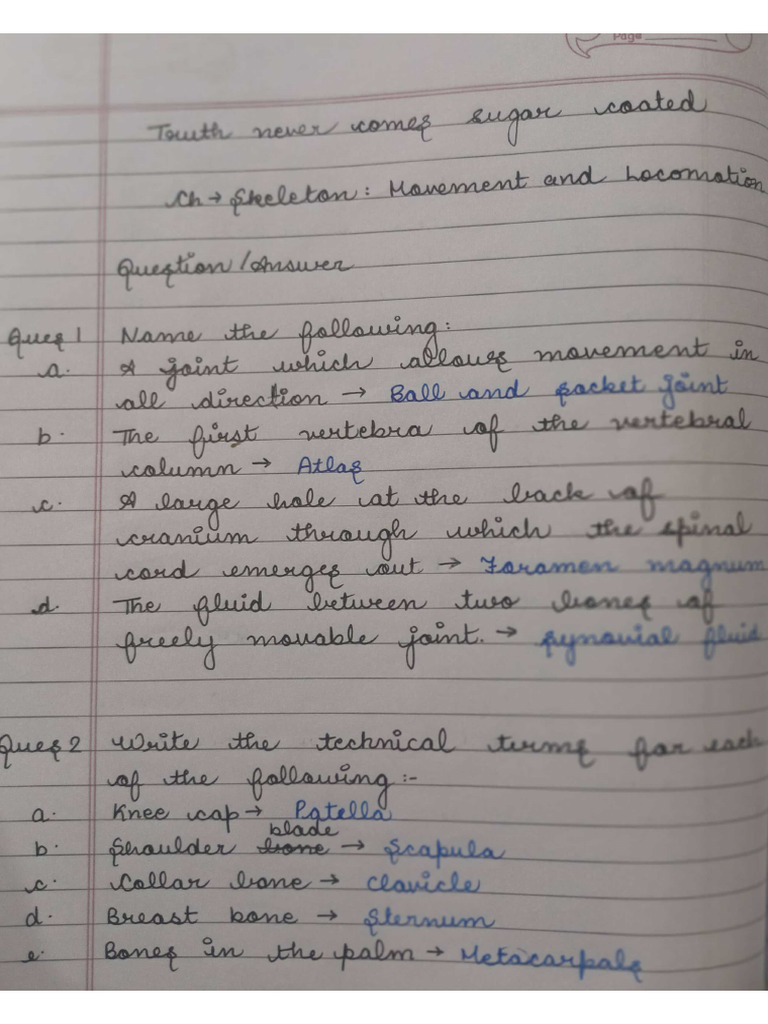 Page
Truth never comes sugar coated
Ch → Skeleton: Movement and Locomotion
Question/Answer
Ques 1 Name the following:
a. A joint which allows movement in
all direction → Ball and socket joint
b. The first vertebra of the vertebral
column → Atlas
c. A large hole at the back of
cranium through which the spinal
cord emerges out → Foramen magnum
d. The fluid between two bones of
freely movable joint. → synovial fluid
Ques 2 Write the technical terms for each
of the following :-
a. Knee cap → Patella
blade
b. Shoulder bone → Scapula
c. Collar bone → clavicle
d. Breast bone → Sternum
e. Bones in the palm → Metacarpals